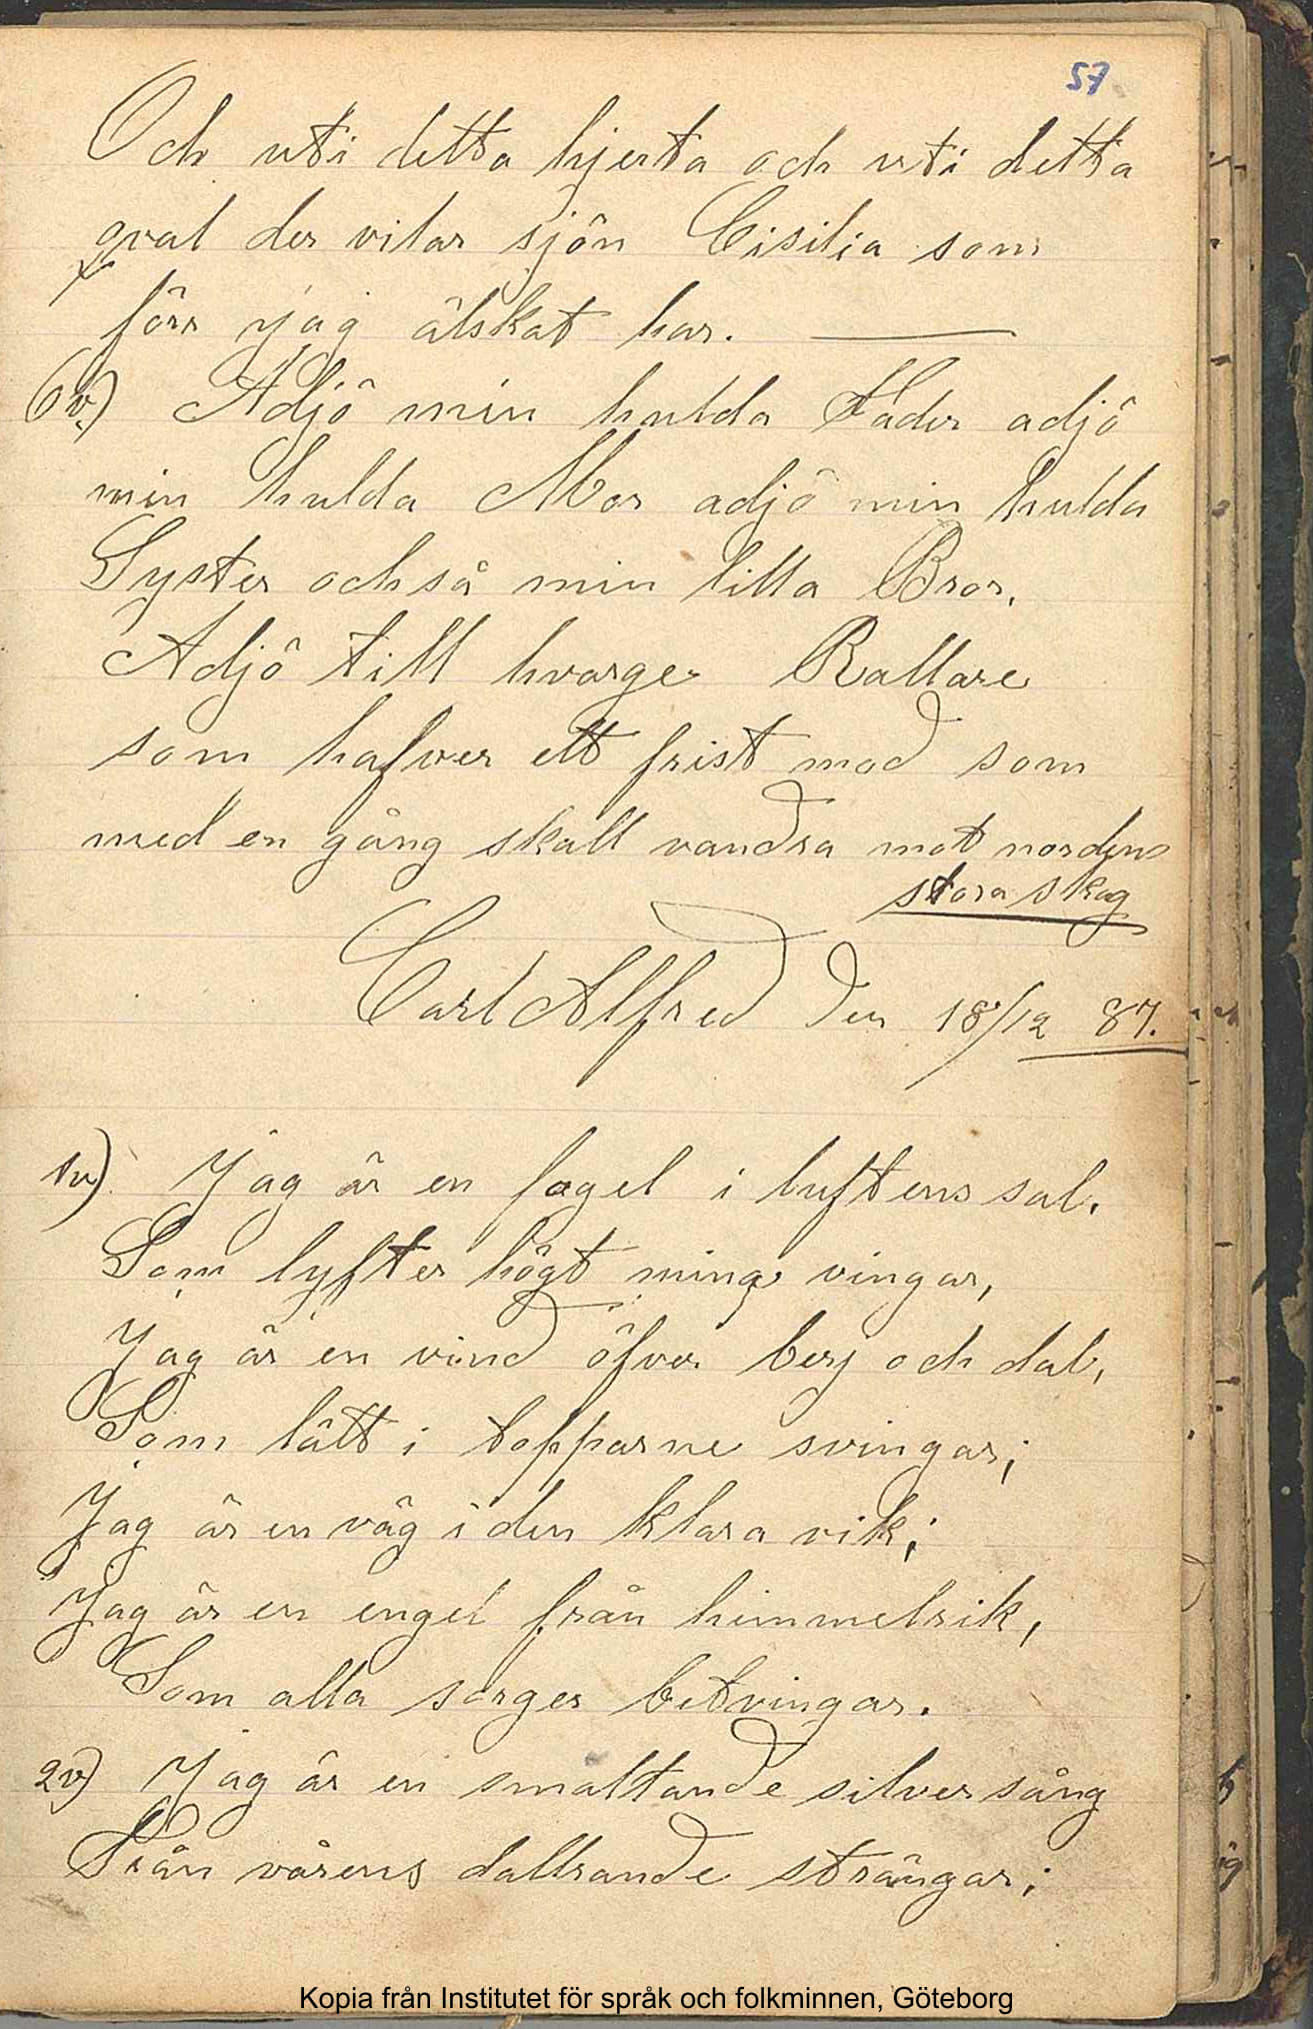 57
Och uti detta hjerta och uti detta
qval der vilar sjön Cisilia som
förr jag älskat har.
6v.) Adjö min hulda Fader adjö
min hulda Mor adjö min hulda
Syster också min lilla Bror.
Adjö till hvarge Rallare
som hafver ett frist mod som
med en gång skall vandra mot nordens
stora skog
Carl Alfred den 18/12 87.
1v) Jag är en fogel i luftens sal.
Som lyfter högt mina vingar,
Jag är en vind öfver berj och dal,
Som lätt i topparne svingar;
Jag är en våg i den klara vik;
Jag är en engel från himmelrik,
Som alla sorger betvingar.
2v) Jag är en smältande silver sång
Från vårens dallrande strängar;
Kopia från Institutet för språk och folkminnen, Göteborg